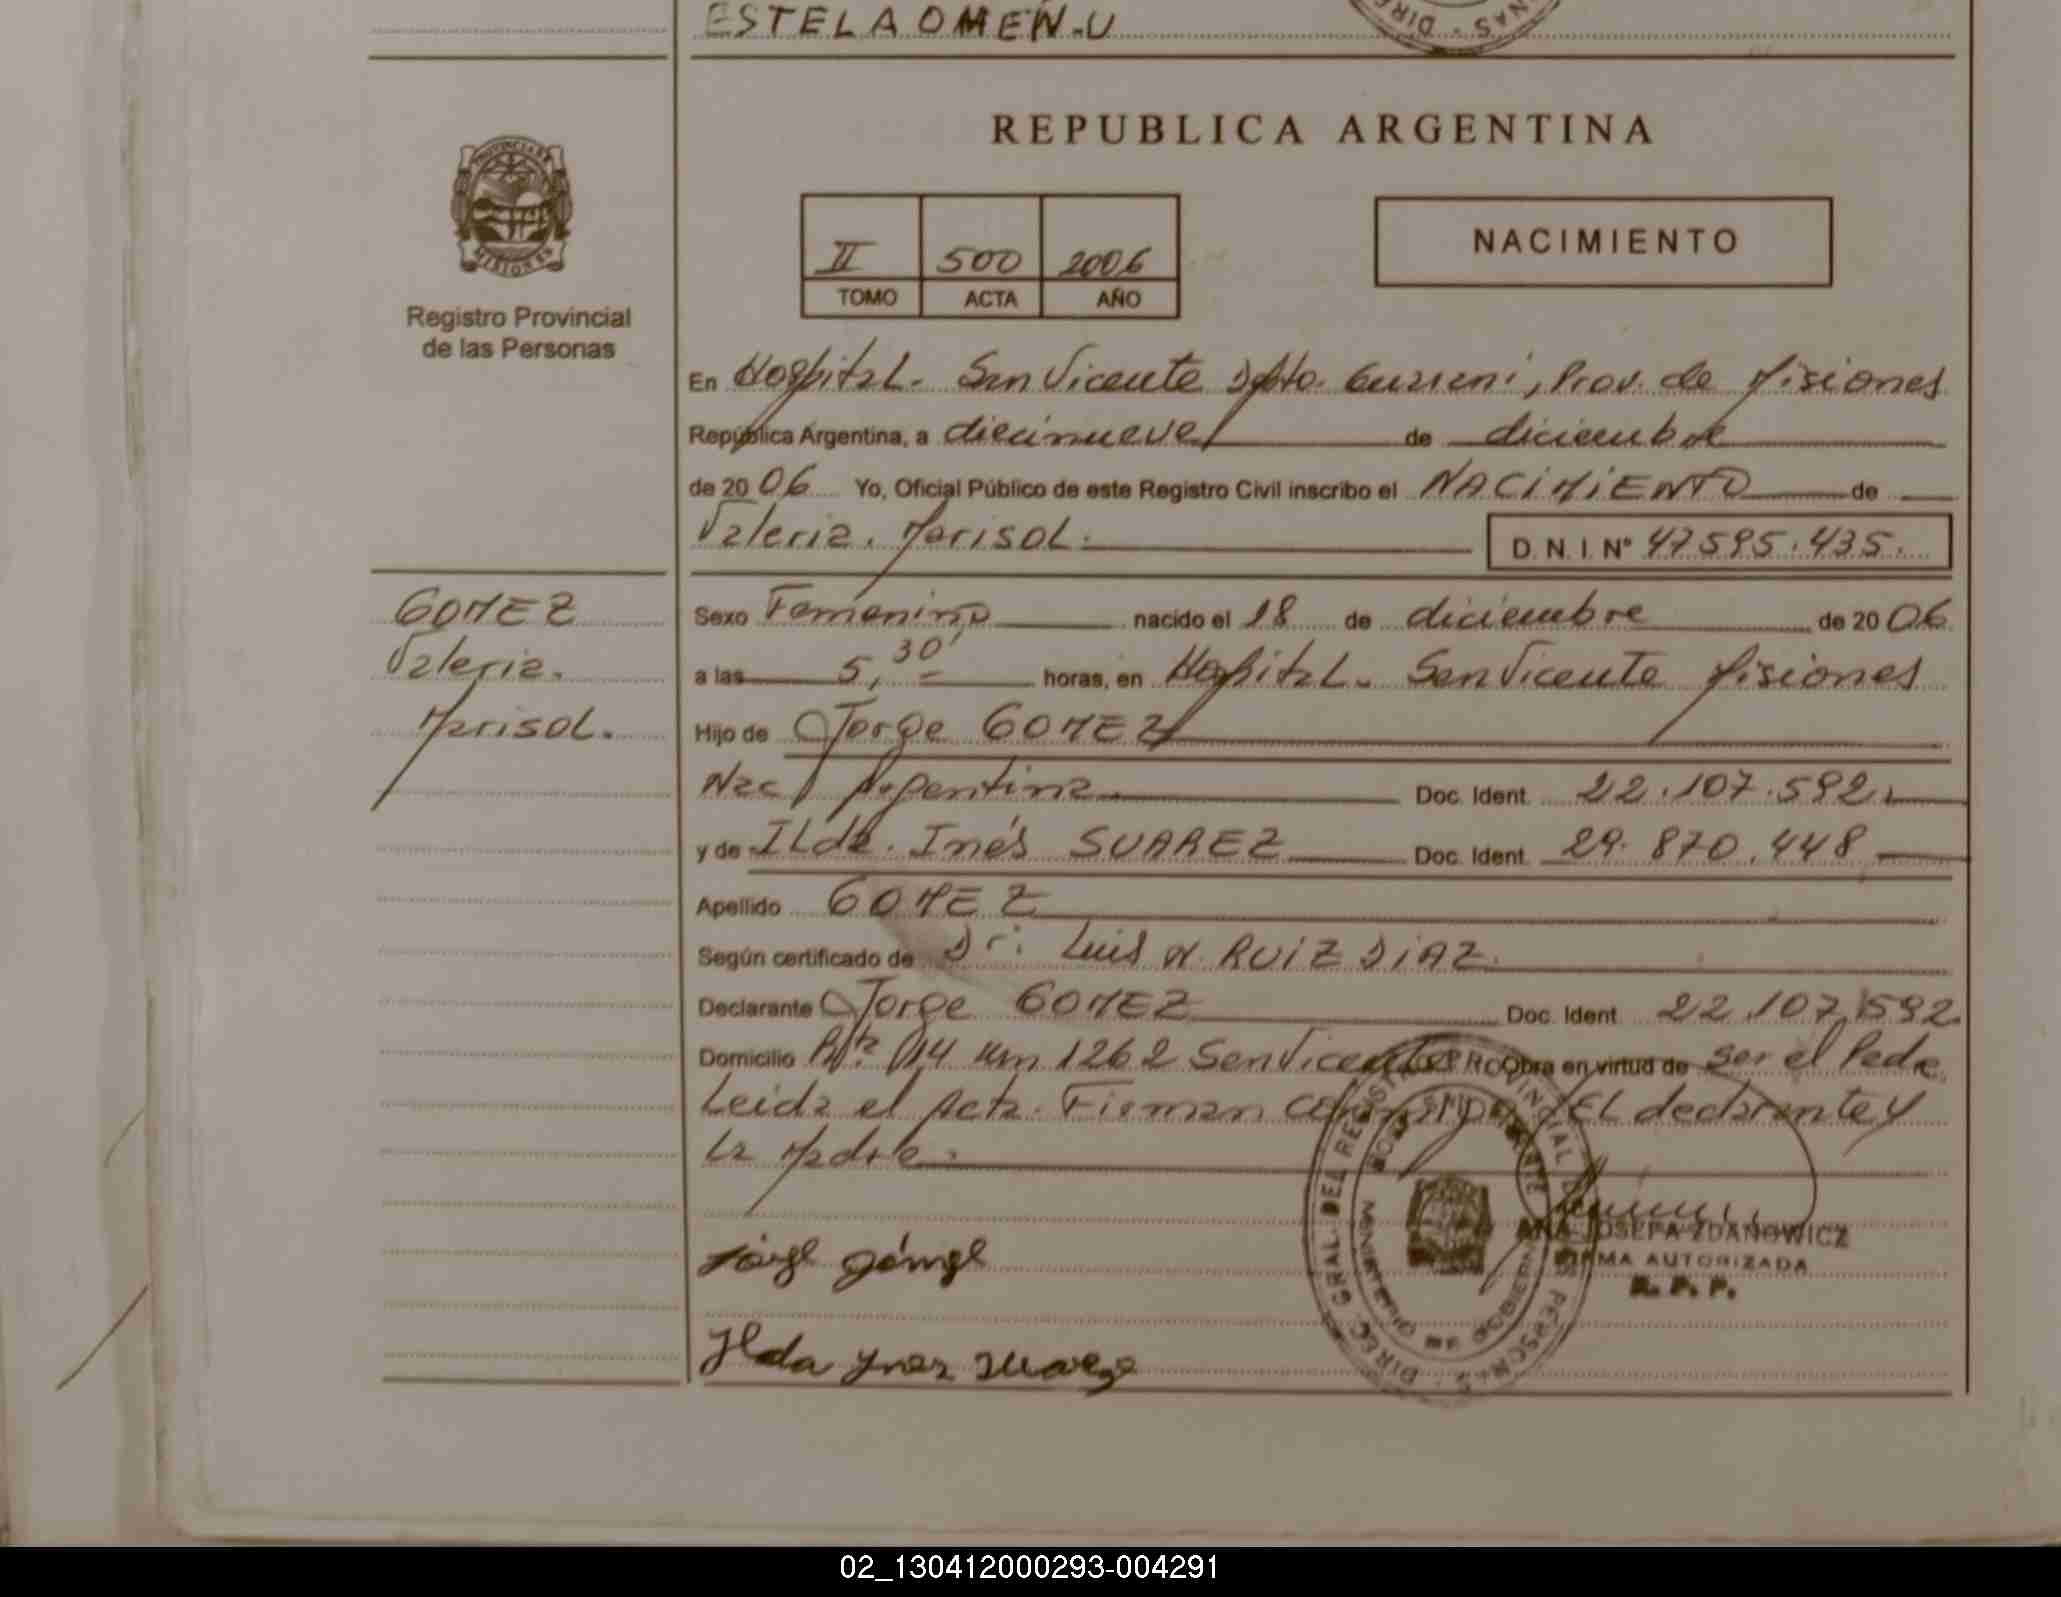 ESTELA OMEN.U
REPUBLICA ARGENTINA
PROVINCIA DE
MISIONES
Registro Provincial
de las Personas
II 500 2006
TOMO ACTA AÑO
NACIMIENTO
En Hospital. San Vicente Dpto. Guaraní, Prov. de Misiones
República Argentina, a diecinueve de diciembre
de 2006 Yo, Oficial Público de este Registro Civil inscribo el NACIMIENTO de
Valeria. Marisol.
D.N.I. Nº 47595.435.
GOMEZ
Valeria.
Marisol.
Sexo Femenino nacido el 18 de diciembre de 2006
a las 5,30 horas, en Hospital. San Vicente Misiones
Hijo de Jorge GOMEZ
Nac Argentina Doc. Ident. 22.107.592.
y de ILda. Inés SUAREZ Doc. Ident. 29.870.448
Apellido GOMEZ
Según certificado de Dr. Luis A. RUIZ DIAZ.
Declarante Jorge GOMEZ Doc. Ident. 22.107.592.
Domicilio Rta. 14 Km 1262 San Vicente Obra en virtud de ser el Padre
Leida el Acta. Firman conmigo. EL declarante y
La Madre.
DIREC. GRAL. DEL REGISTRO PROVINCIAL DE
ANA JOSEFA ZDANOWICZ
FIRMA AUTORIZADA
R. P. P.
Jorge Gómez
Ilda Ynes Suarez
02_130412000293-004291